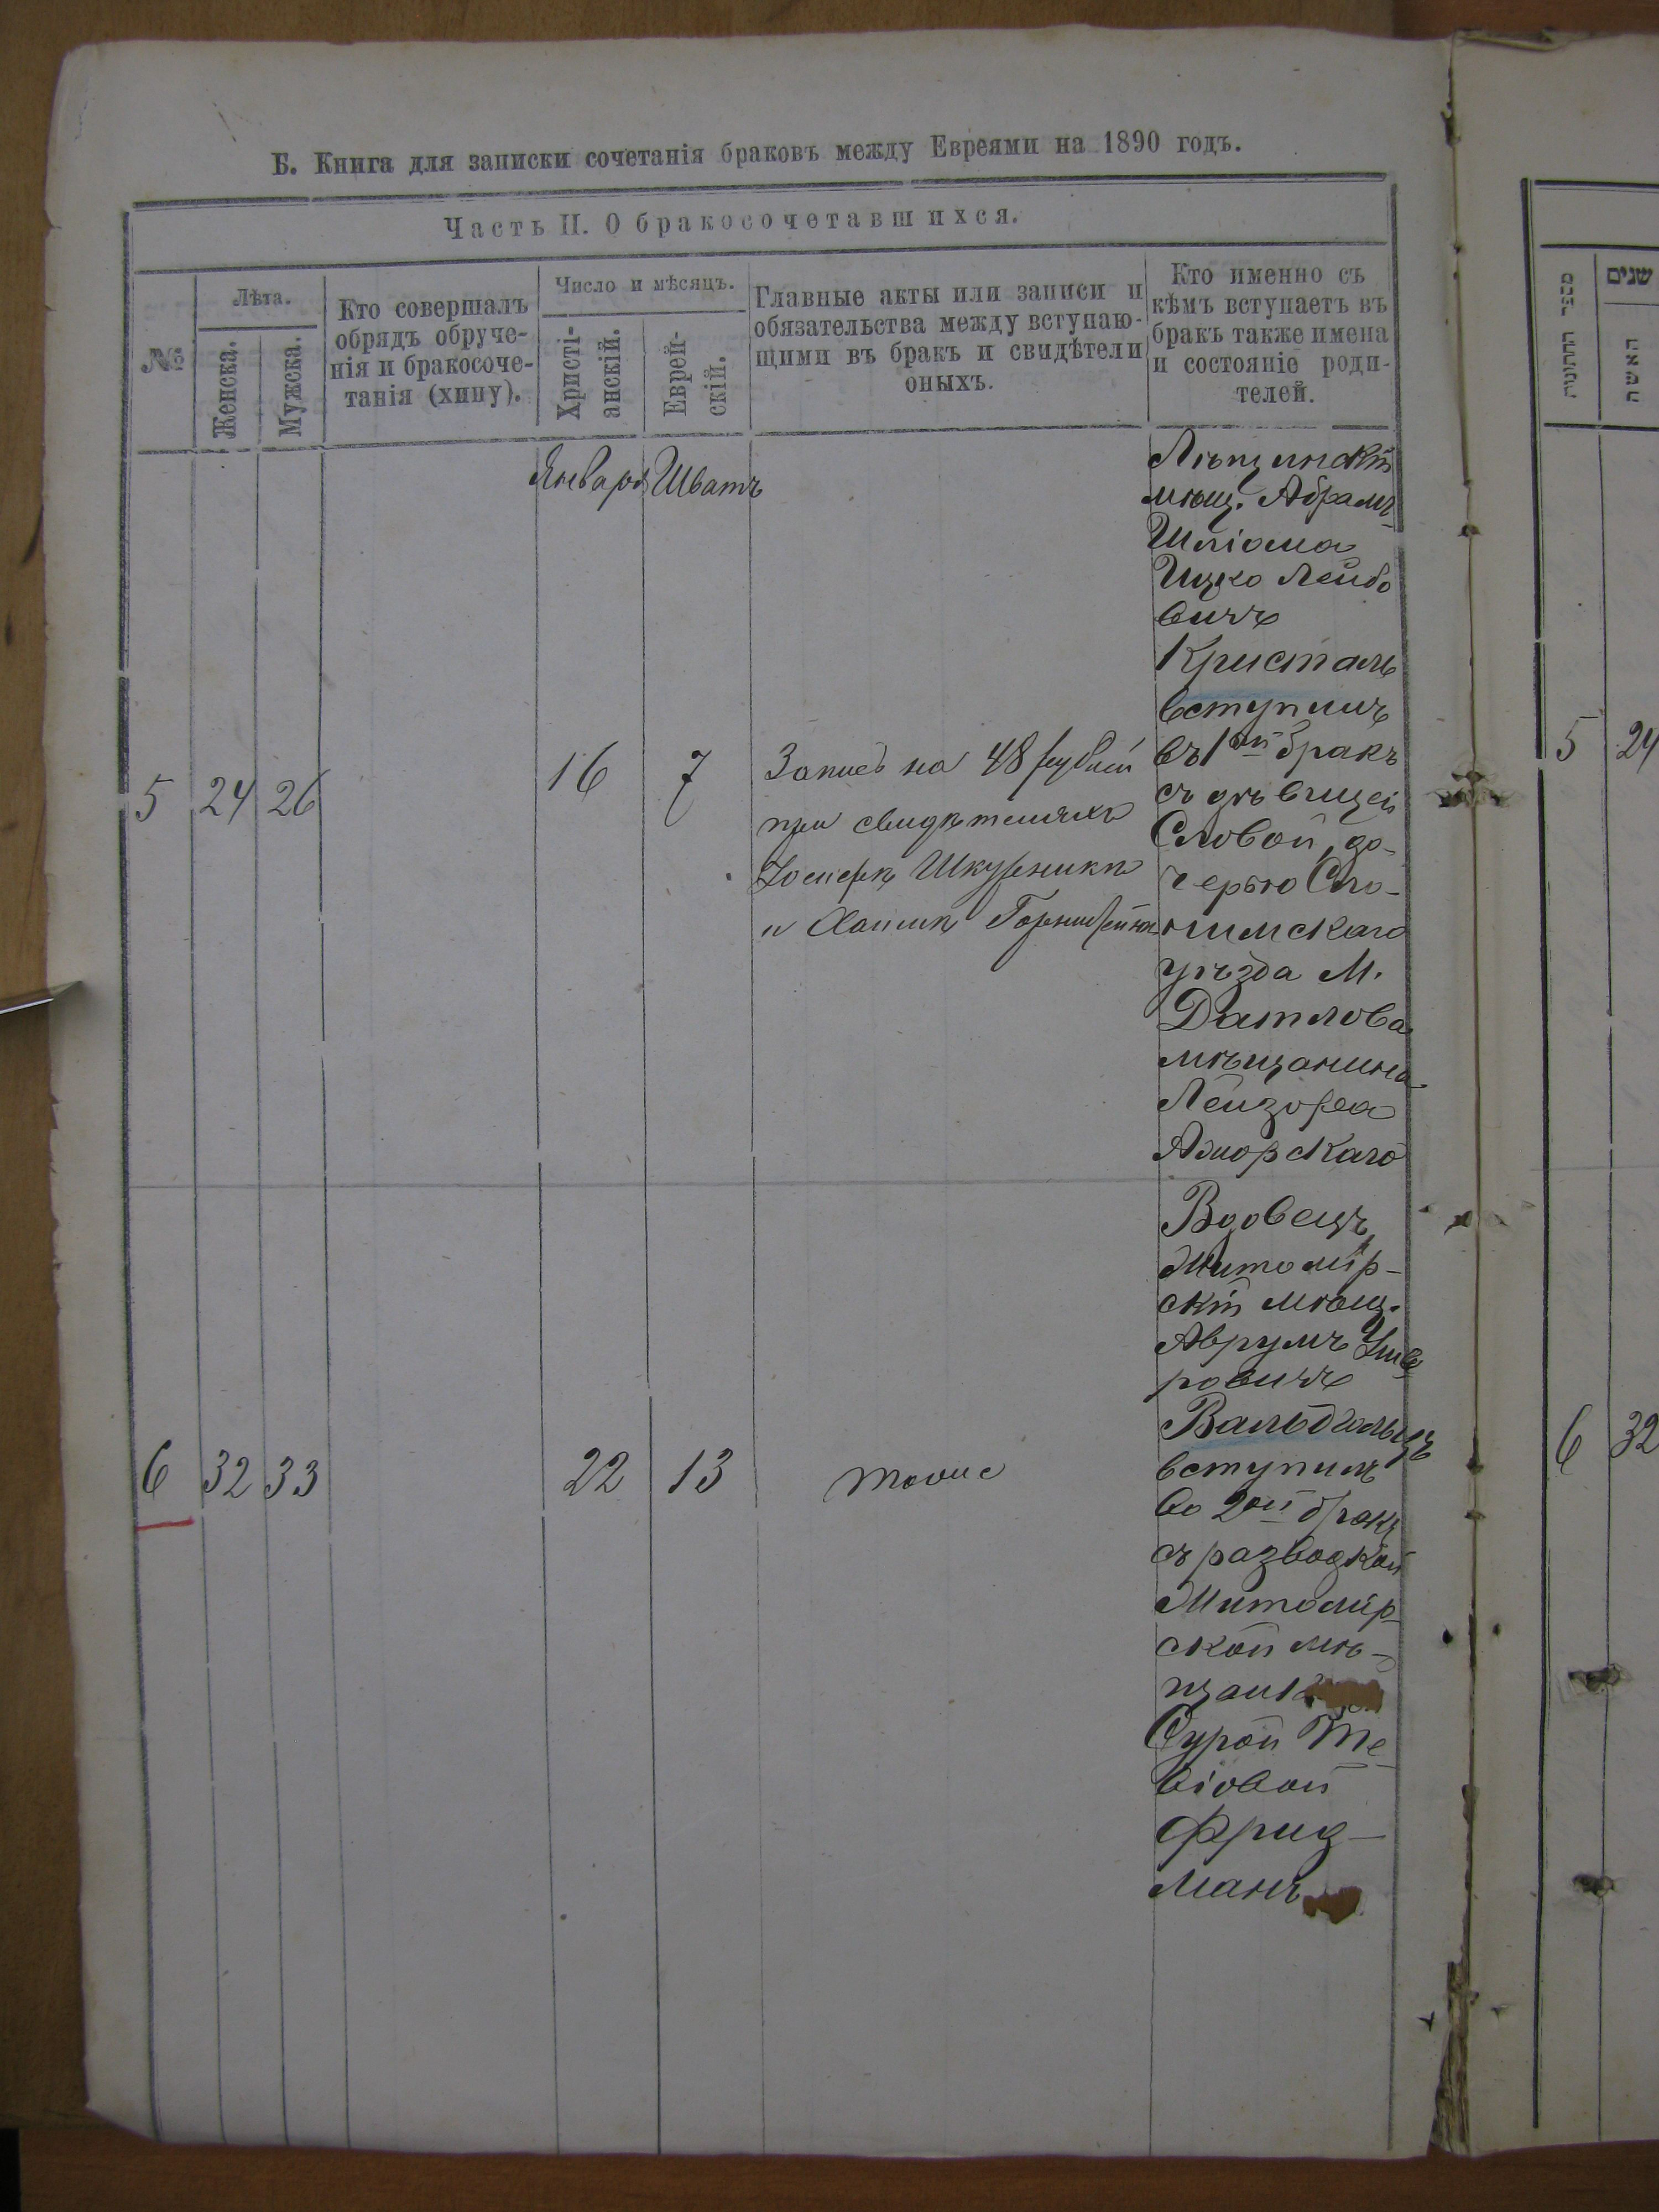 Б. Книга для записки сочетанія браковъ между Евреями на 1890 годъ.
Часть II. О бракосочетавшихся.
№
Лѣта.
Женска.
Мужска.
Кто совершалъ
обрядъ обруче-
нія и бракосоче-
танія (хипу).
Число и мѣсяцъ.
Христі-
анскій.
Еврей-
скій.
Главные акты или записи и
обязательства между вступаю-
щими въ бракъ и свидѣтели
оныхъ.
Кто именно съ
кѣмъ вступаетъ въ
бракъ также имена
и состояніе роди-
телей.
Января Шватъ
5 24 26 16 7
Запись на 48 рублей
при свидѣтеляхъ
Іосифѣ Шкурникѣ
и Хаимѣ
мѣщ. Абрамъ-
Шліома
Ицко Лейбо
вичъ
Кристаль
вступилъ
въ 1ый бракъ
съ дѣвицей
Словой, до-
черью Сло-
нимскаго
уѣзда М.
Дятлова
мѣщанина
Лейзора
Вдовецъ
Житомір-
скій мѣщ.
Аврумъ
ровичъ
Вальдгольцъ
вступилъ
во 2ой бракъ
съ разводкой
Житомір-
ской мѣ-
щанк
Сурой Те
віовой
Фрид-
манъ
6 32 33 22 13 тоже
מספר החתונות
שנים
האשה
5 24
6 32